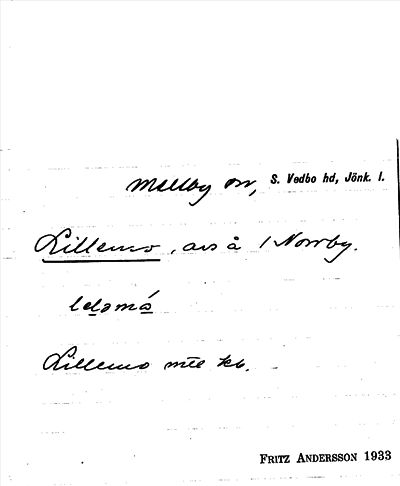 Mellby sn, S. Vedbo hd, Jönk. l.
Lillemo, avs å 1 Norrby.
leləmá
Lillemo mtl kb.
FRITZ ANDERSSON 1933